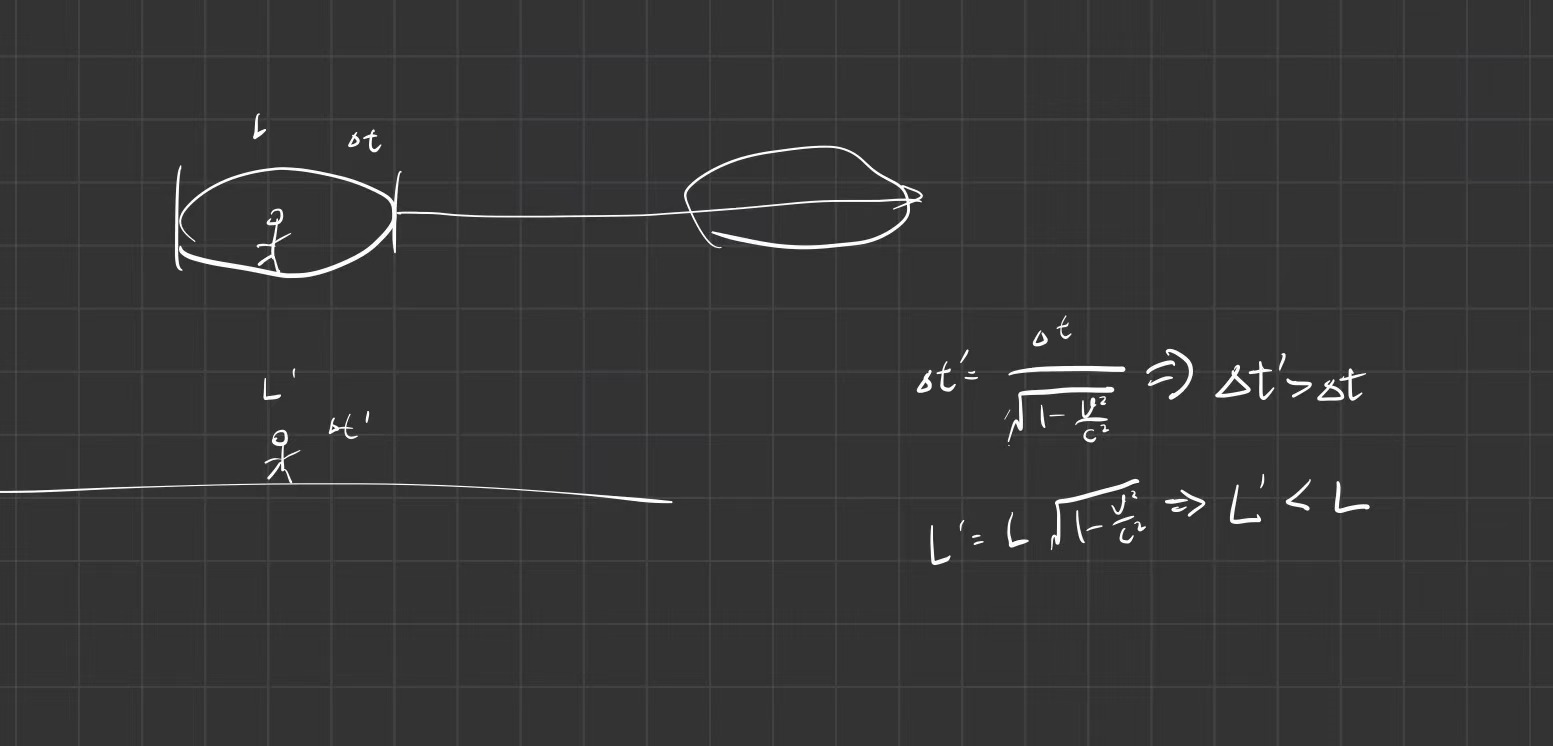 L
Δt
L'
Δt'
Δt' = Δt / √(1 - v²/c²) ⇒ Δt' > Δt
L' = L √(1 - v²/c²) ⇒ L' < L